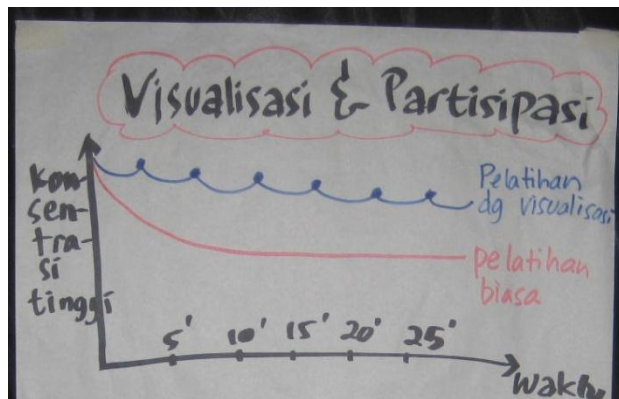 Visualisasi & Partisipasi
Kon-
sen-
tra-
si
tinggi
Pelatihan
dg visualisasi
pelatihan
biasa
5' 10' 15' 20' 25'
Waktu